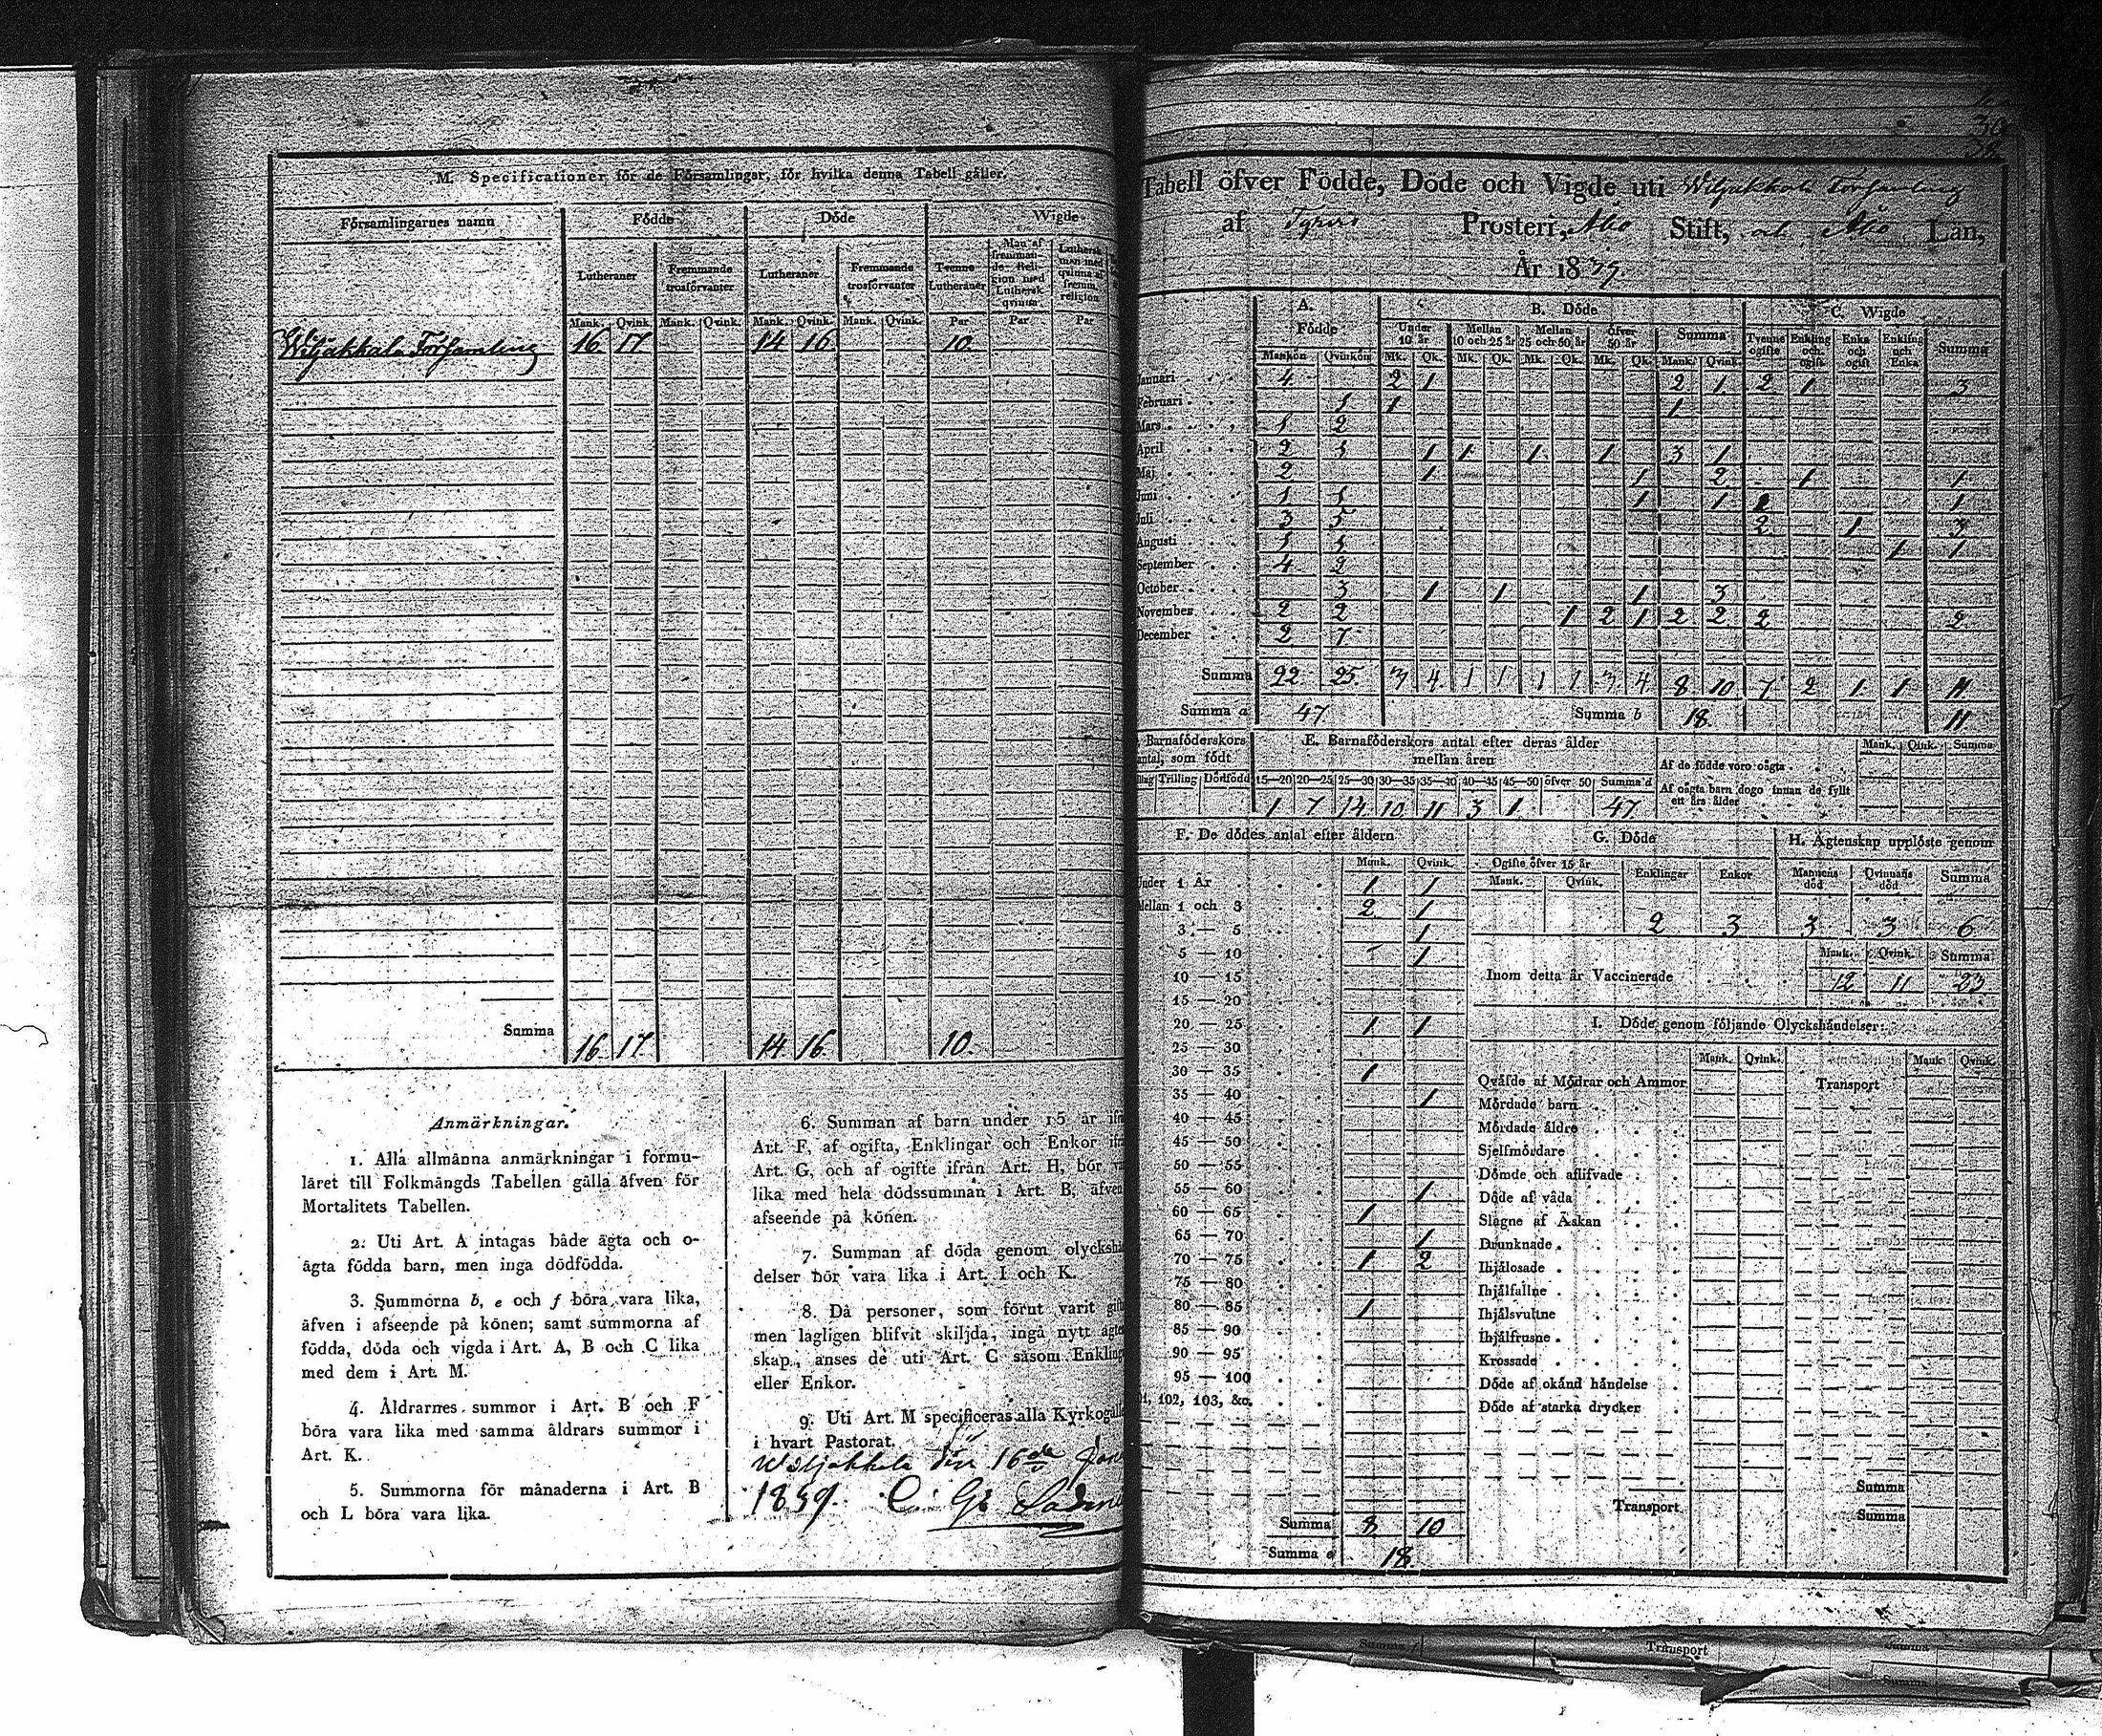 M. Specificationer för de Församlingar, för hvilka denna Tabell gäller.
Församlingarnes namn Födde Döde Wigde
Lutheraner Fremmande trosförvanter Lutheraner Fremmande trosförvanter Tvenne Lutheraner Man af fremmande Religion med Luthersk qvinna. Luthersk man med qvinna af fremm. religion
Mank. Qvink. Mank. Qvink. Mank. Qvink. Mank. Qvink. Par Par Par
Wiljakkala Församling 16. 17. 14 16 10.
Summa 16. 17. 14 16. 10.
Anmärkningar.
1. Alla allmänna anmärkningar i formu-
läret till Folkmängds Tabellen gälla äfven för
Mortalitets Tabellen.
2. Uti Art. A intagas både ägta och o-
ägta födda barn, men inga dödfödda.
3. Summorna b, e och f böra vara lika,
äfven i afseende på könen; samt summorna af
födda, döda och vigda i Art. A, B och C lika
med dem i Art. M.
4. Åldrarnes summor i Art. B och F
böra vara lika med samma åldrars summor i
Art. K.
5. Summorna för månaderna i Art. B
och L böra vara lika.
6. Summan af barn under 15 år
Art. F, af ogifta, Enklingar och Enkor
Art. G, och af ogifte ifrån Art. H, bör
lika med hela dödssumman i Art. B, äfven
afseende på könen.
7. Summan af döda genom olyckshä
delser bör vara lika i Art. I och K.
8. Då personer, som förut varit
men lagligen blifvit skiljda, ingå nytt
skap, anses de uti Art. C såsom Enkling
eller Enkor.
9. Uti Art. M specificeras alla Kyrkogäll
i hvart Pastorat.
Wiljakkala den 16de
1839. C. G.
Tabell öfver Födde, Döde och Vigde uti Wiljakkala Församling
af Prosteri, Åbo Stift, och Åbo Län,
År 1839.
A. Födde B. Döde C. Wigde
Under 10 år Mellan 10 och 25 år Mellan 25 och 50 år öfver 50 år Summa Tvenne ogifte Enkling och ogift Enka och ogift Enkling och Enka Summa
Mankön Qvinkön Mk. Qk. Mk. Qk. Mk. Qk. Mk. Qk. Mank. Qvink.
Januari 4 2 1 2 1 2 1 3
Februari 1 1 1
Mars 1 2
April 2 1 1 1 1 1 3 1
Maj 2 1 1 2 1 1
Juni 1 1 1 1 1
Juli 3 5 2 1 3
Augusti 1 1 1 1
September 4 2
October 3 1 1 1 3
November 2 2 1 2 1 2 2 2 2
December 2 7
Summa 22 25 3 4 1 1 1 1 3 4 8 10 7 2 1 1 11
Summa a 47 Summa b 18. 11
Barnaföderskors antal, som födt
Trilling Dödfödd
E. Barnaföderskors antal efter deras ålder mellan åren
15—20 20—25 25—30 30—35 35—40 40—45 45—50 öfver 50 Summa d
1 7 14 10 11 3 1 47
Mank. Qink. Summa
Af de födde voro oägta
Af oägta barn dogo innan de fyllt
ett års ålder
F. De dödes antal efter åldern
Mank. Qvink.
Under 1 År 1 1
Mellan 1 och 3 2 1
3 — 5 1
5 — 10 1
10 — 15
15 — 20
20 — 25 1 1
25 — 30
30 — 35 1
35 — 40 1
40 — 45
45 — 50
50 — 55
55 — 60 1
60 — 65 1
65 — 70 1
70 — 75 1 2
75 — 80
80 — 85 1
85 — 90
90 — 95
95 — 100
102, 103, &c.
Summa 8 10
Summa e 18.
G. Döde
Ogifte öfver 15 år Enklingar Enkor
Mank. Qvink.
2 3
H. Ägtenskap upplöste genom
Mannens död Qvinnans död Summa
3 3 6
Mank. Qvink. Summa
Inom detta år Vaccinerade 12 11 23
I. Döde genom följande Olyckshändelser:
Mank. Qvink. Mank. Qvink.
Qväfde af Mödrar och Ammor Transport
Mördade barn
Mördade äldre
Sjelfmördare
Dömde och aflifvade
Döde af våda
Slagne af Åskan
Drunknade
Ihjälosade
Ihjälfallne
Ihjälsvultne
Ihjälfrusne
Krossade
Döde af okänd händelse
Döde af starka drycker
Summa
Transport Summa
Summa Transport Summa
Summa